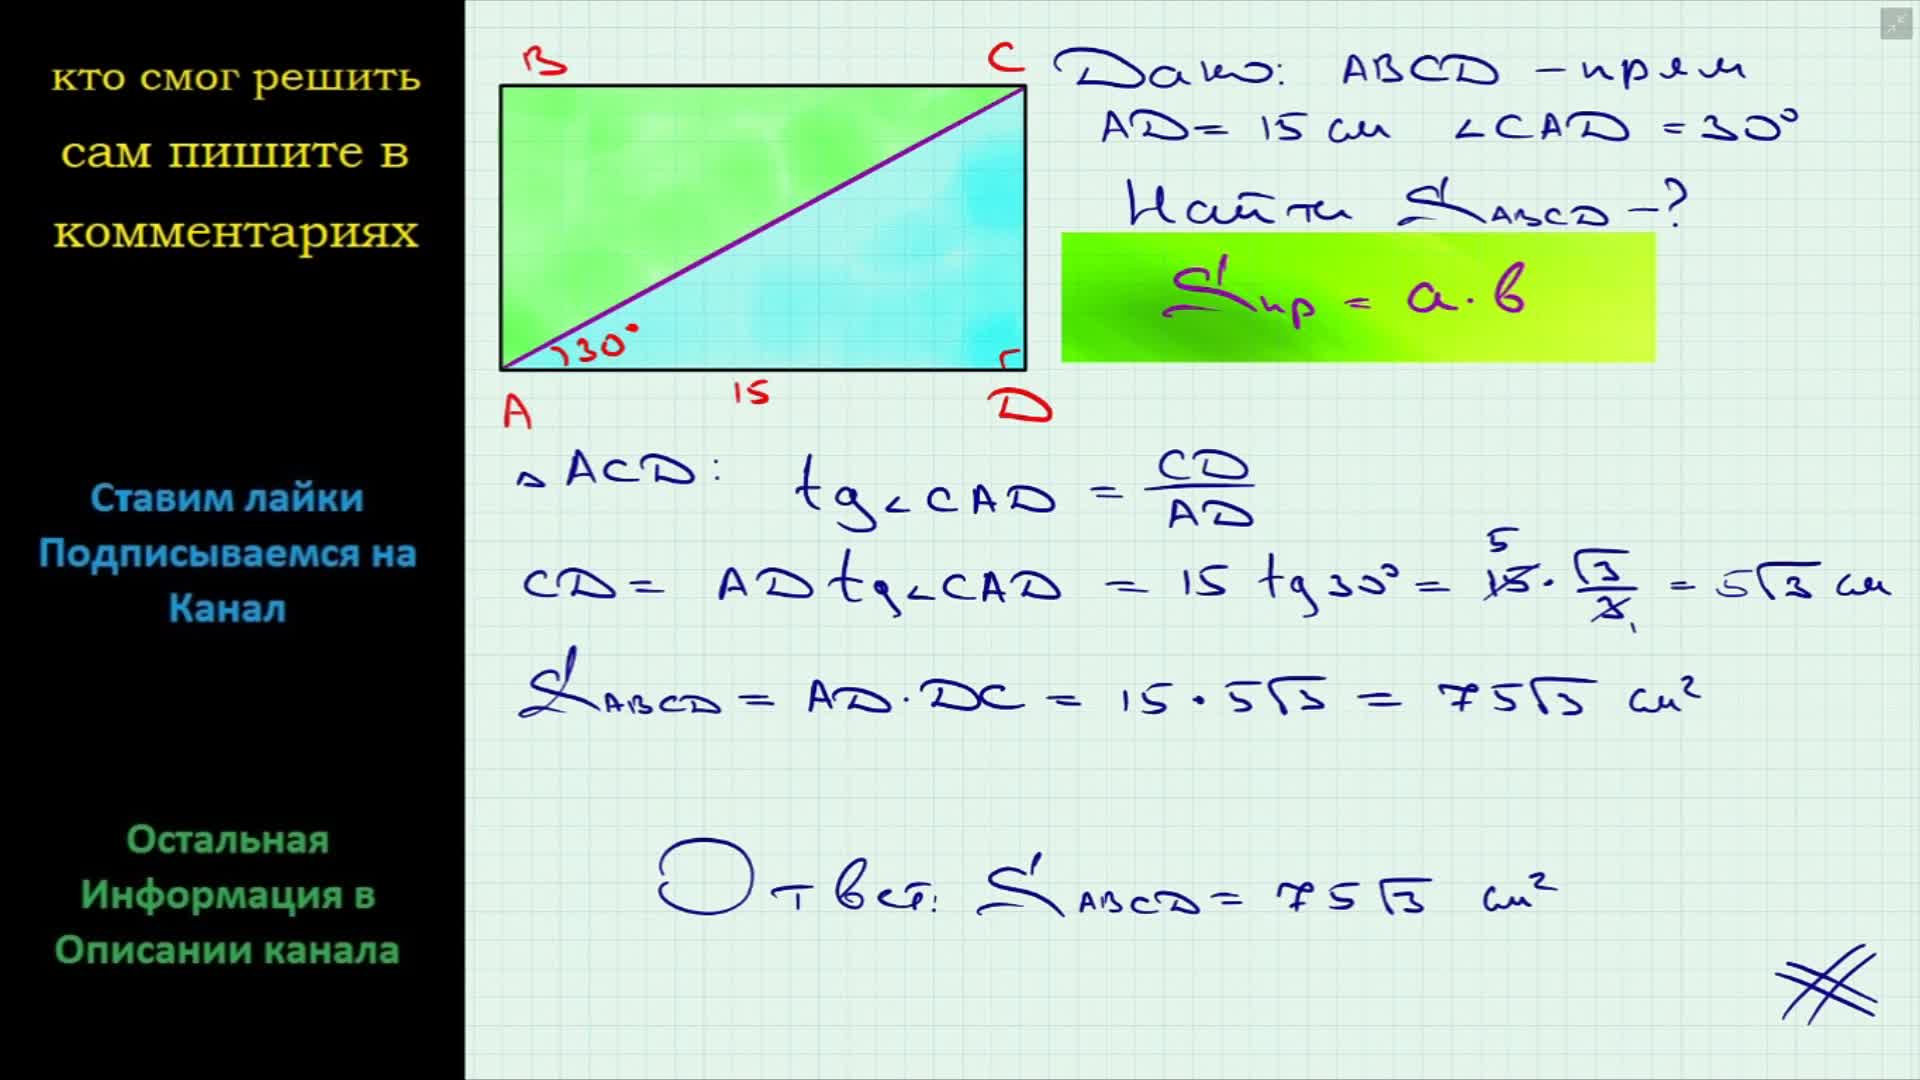 кто смог решить
сам пишите в
комментариях
Ставим лайки
Подписываемся на
Канал
Остальная
Информация в
Описании канала
B
C
30°
15
A
D
Дано: ABCD – прям
AD = 15 см ∠CAD = 30°
Найти S_ABCD – ?
S_пр = a · в
△ ACD: tg∠CAD = CD/AD
CD = AD tg∠CAD = 15 tg 30° = 15 (5) · √3/3 (1) = 5√3 см
S_ABCD = AD · DC = 15 · 5√3 = 75√3 см²
Ответ: S_ABCD = 75√3 см²